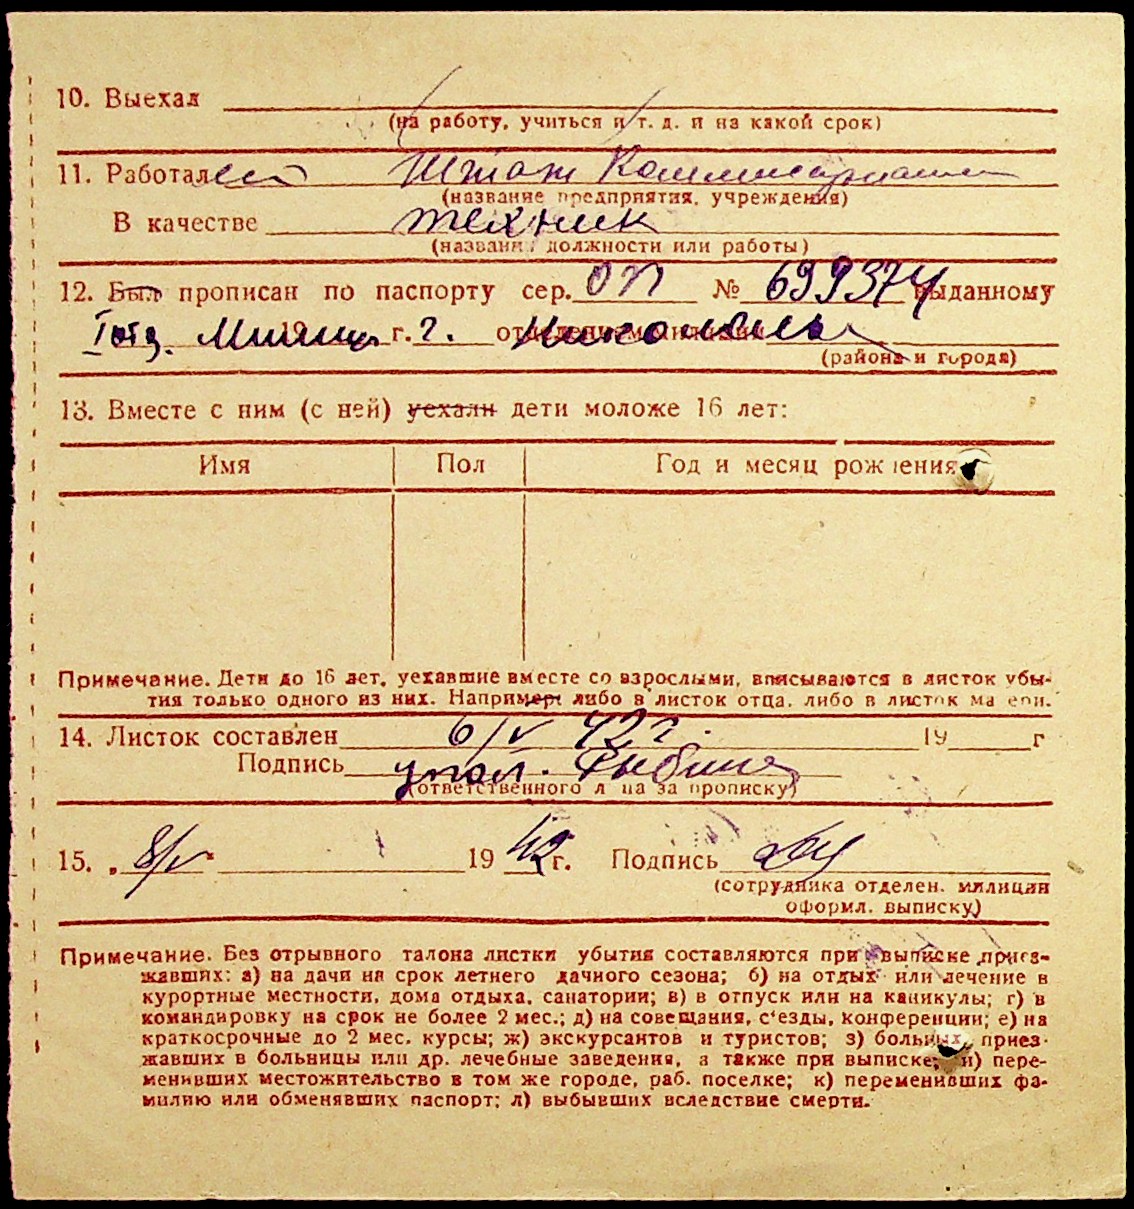 10. Выехал
(на работу, учиться и т. д. и на какой срок)
11. Работал Штат
(название предприятия, учреждения)
В качестве техник
(название должности или работы)
12. Был прописан по паспорту сер. ОП № 699374 выданному
I отд. Милиции 19 г. г. отделением милиции
(района и города)
13. Вместе с ним (с ней) уехали дети моложе 16 лет:
Имя Пол Год и месяц рождения
Примечание. Дети до 16 лет, уехавшие вместе со взрослыми, вписываются в листок убы-
тия только одного из них. Например либо в листок отца, либо в листок матери.
14. Листок составлен 6/V 42 г. 19 г
Подпись упол.
(ответственного лица за прописку)
15. „ 8/V " 1942 г. Подпись
(сотрудника отделен. милиции
оформл. выписку)
Примечание. Без отрывного талона листки убытия составляются при выписке приез-
жавших: а) на дачи на срок летнего дачного сезона; б) на отдых или лечение в
курортные местности, дома отдыха, санатории; в) в отпуск или на каникулы; г) в
командировку на срок не более 2 мес.; д) на совещания, с'езды, конференции; е) на
краткосрочные до 2 мес. курсы; ж) экскурсантов и туристов; з) больных, приез-
жавших в больницы или др. лечебные заведения, а также при выписке; и) пере-
менивших местожительство в том же городе, раб. поселке; к) переменивших фа-
милию или обменявших паспорт; л) выбывших вследствие смерти.